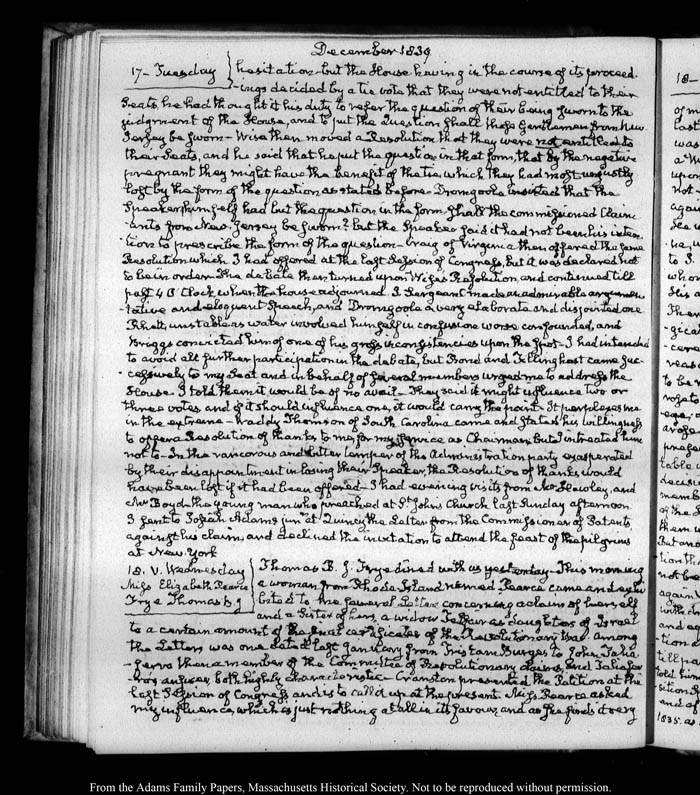 December 1839
17- Tuesday
hesitation but the House having in the course of its proceed
-ings decided by a tie vote that they were not entitled to their
Seats, he had thought it his duty to refer the question of their being sworn to the
judgment of the House, and to put the Question shall these Gentlemen from New
Jersey be sworn- Wise then moved a Resolution that they were not entitled to
their Seats, and he said that he put the question in that form, that by the negative
pregnant they might have the benefit of the tie, which they had most unjustly
lost by the form of the question as stated before- Dromgoole insisted that the
Speaker himself had put the question in the form Shall the commissioned Claim
-ants from New Jersey be sworn? but the Speaker said it had not been his inten
-tion to prescribe the form of the question- Craig of Virginia then offered the same
Resolution which I had offered at the last Session of Congress, but it was declared not
to be in order. The debate then turned upon Wise's Resolution, and continued till
past 4 O'Clock when the house adjourned. I. Sergeant made an admirable argumen
-tative and eloquent Speech, and Dromgoole a very elaborate and disjointed one
Rhett, unstable as water involved himself in confusion worse confounded, and
Briggs convicted him of one of his gross inconsistencies upon the spot- I had intended
to avoid all further participation in the debate, but Bond and Tillinghast came suc-
-cessively to my Seat and in behalf of several members urged me to address the
House. I told them it would be of no avail- They said it might influence two or
three votes and if it should influence one, it would carry the point- It perplexes me
in the extreme- Waddy Thomson of South Carolina came and stated his willingness
to offer a Resolution of thanks to me, for my service as Chairman but I intreated him
not to- In the rancorous and bitter temper of the Administration party, exasperated
by their disappointment in losing their Speaker, the Resolution of thanks would
have been lost if it had been offered- I had evening visits from Mr Hawley, and
Mr Boyd the young man who preached at St. John's Church last Sunday afternoon
I sent to Josiah Adams junr. at Quincy the Letter from the Commissioner of Patents
against his claim, and declined the invitation to attend the feast of the pilgrims
at New York
18. V. Wednesday
Miss Elizabeth Pearce
Frye Thomas B. J
Thomas B. J. Frye dined with us yesterday- This morning
a woman from Rhode Island named Pearce came and
to me several Letters concerning a claim of herself
and a Sister of hers, a widow as daughters of Israel
to a certain amount of final certificates of the Revolutionary War. Among
the Letters was one dated last January from Tristam Burges to John Talia
-ferro then a member of the Committee of Revolutionary claims, and Taliafer
-ro's answer both highly characteristic- Cranston presented the Petition at the
last Session of Congress and is to call it up at the present. Miss Pearce asked
my influence, which is just nothing at all in its favour, and as she finds it very
18-
of m
last
was
upon
not
again
to S.
whom
His a
Ther
-gica
-cere
reas
to be